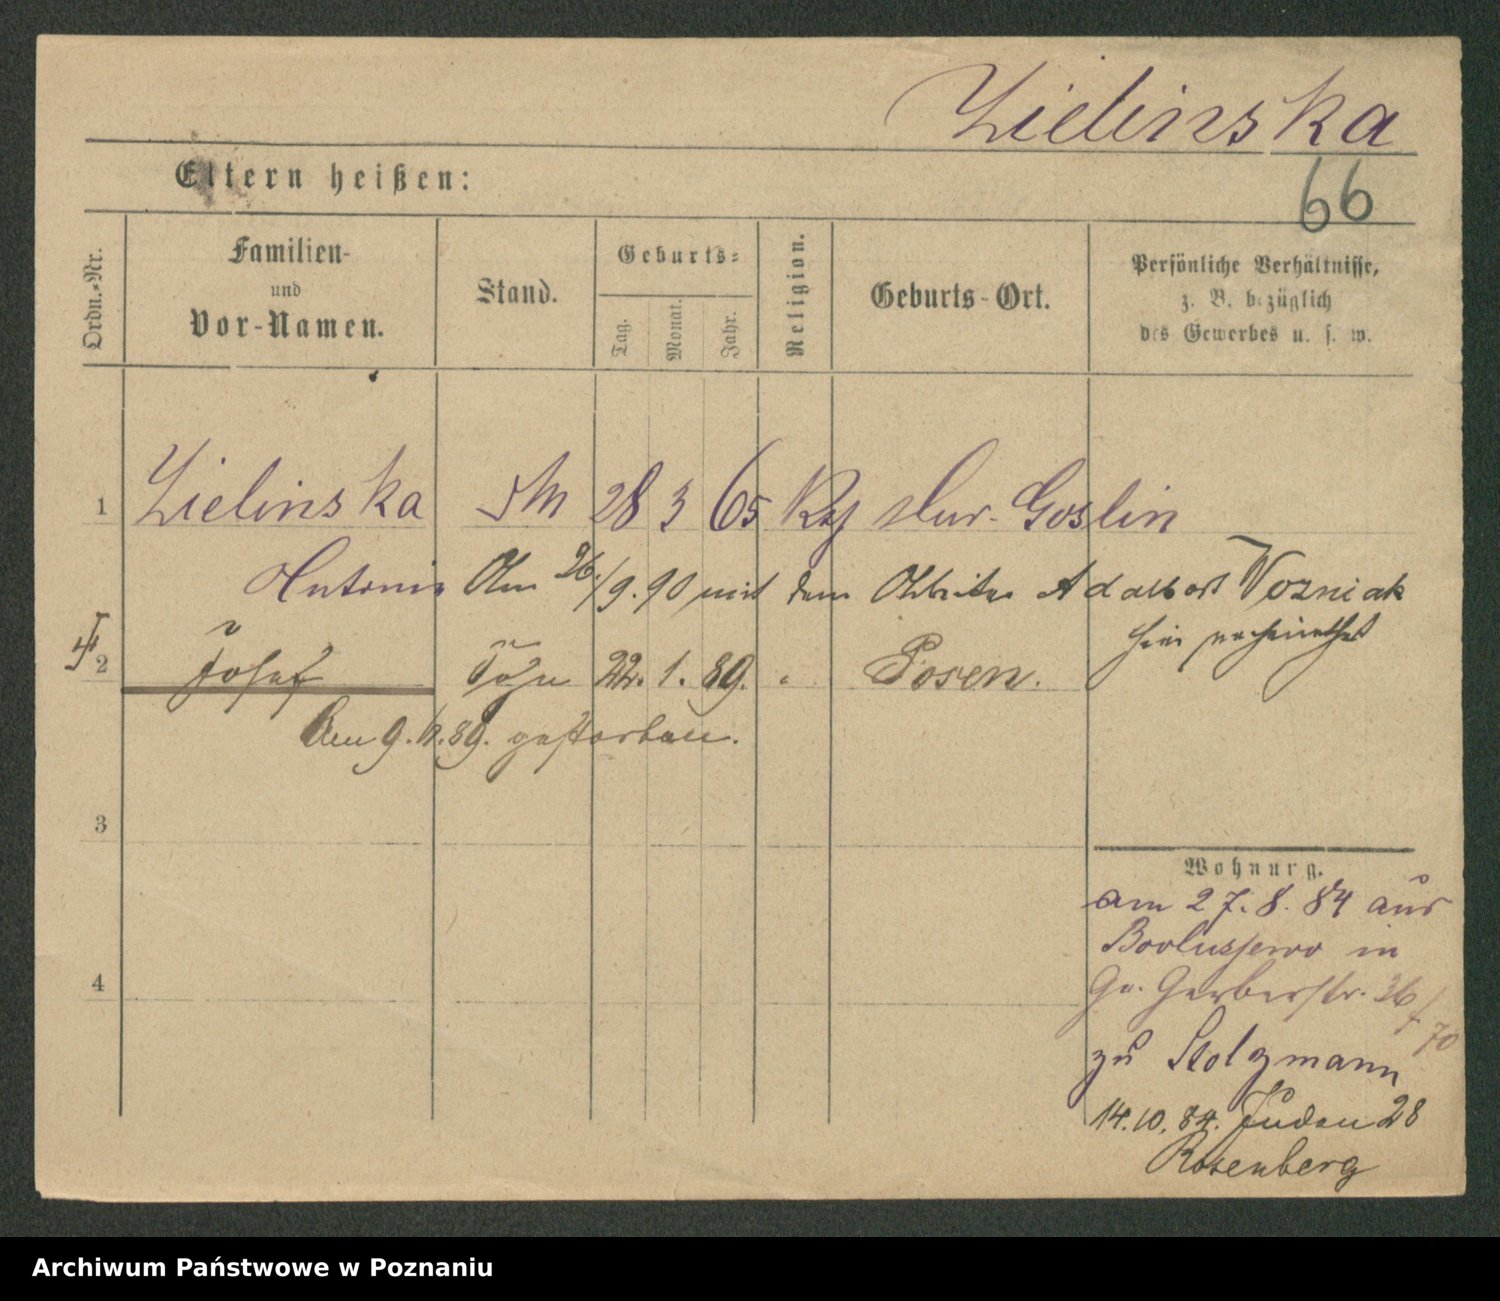 Zielinska
66
Eltern heißen:
Ordn.-Nr.
Familien-
und
Vor-Namen.
Stand.
Geburts-
Tag.
Monat.
Jahr.
Religion.
Geburts-Ort.
Persönliche Verhältnisse,
z. B. bezüglich
des Gewerbes u. s. w.
1 Zielinska 28 3 65 Mur. Goslin
Antonia Am 26./9.90 mit dem Arbeiter Adalbert Wozniak
hier verheirathet
2 Josef 22. 1. 89. " Posen.
Am 9. 89. gestorben.
3
4
Wohnung.
am 27. 8. 84 aus
in
Gr. Gerberstr. 36/
70
zu Stolzmann
14.10.84. Juden 28
Rosenberg
Archiwum Państwowe w Poznaniu